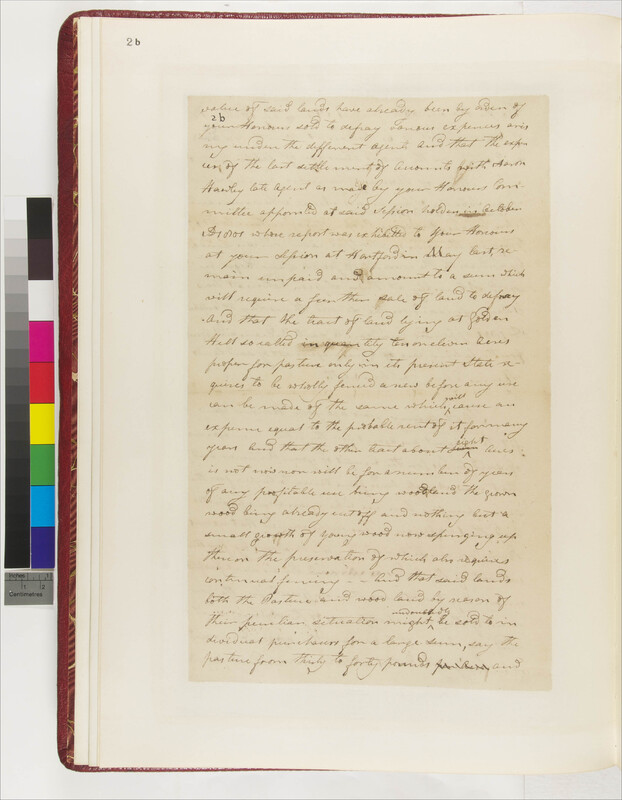 2b
value of said lands have already been by order of
2b
your Honours sold to defray various expences aris
ing under the different Agents and that the expen
ces of the last settlement of accounts with Aaron
Hawley late Agent as made by your Honours Com
mittee appointed at said Session holden in October
1801 whose report was exhibited to your Honours
at your Session at Hartford in May last, re
main unpaid and amount to a sum which
will require a further sale of land to defray
And that the tract of land lying at Golden
Hill so called in quantity ten or eleven Acres
proper for pasture only in its present State re
quires to be wholly fenced a new before any use
can be made of the same which will cause an
expence equal to the probable rent of it for many
years And that the other tract about eight Acres
is not now nor will be for a number of years
of any profitable use being woodland the grown
wood being already cut off and nothing but a
small growth of young wood now springing up
thereon the preservation of which also requires
continual fencing - And that said lands
both the Pasture and wood land by reason of
their peculiar situation might undoubtedly be sold to in
dividual purchasers for a large sum, say the
pasture from thirty to forty pounds and
Inches
Centimetres